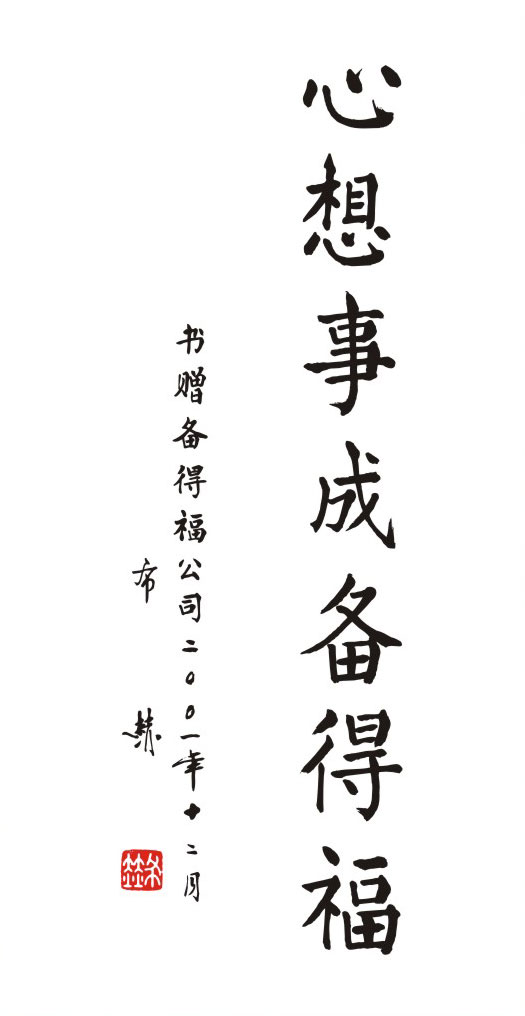 心想事成备得福
书赠备得福公司二〇〇一年十二月
布